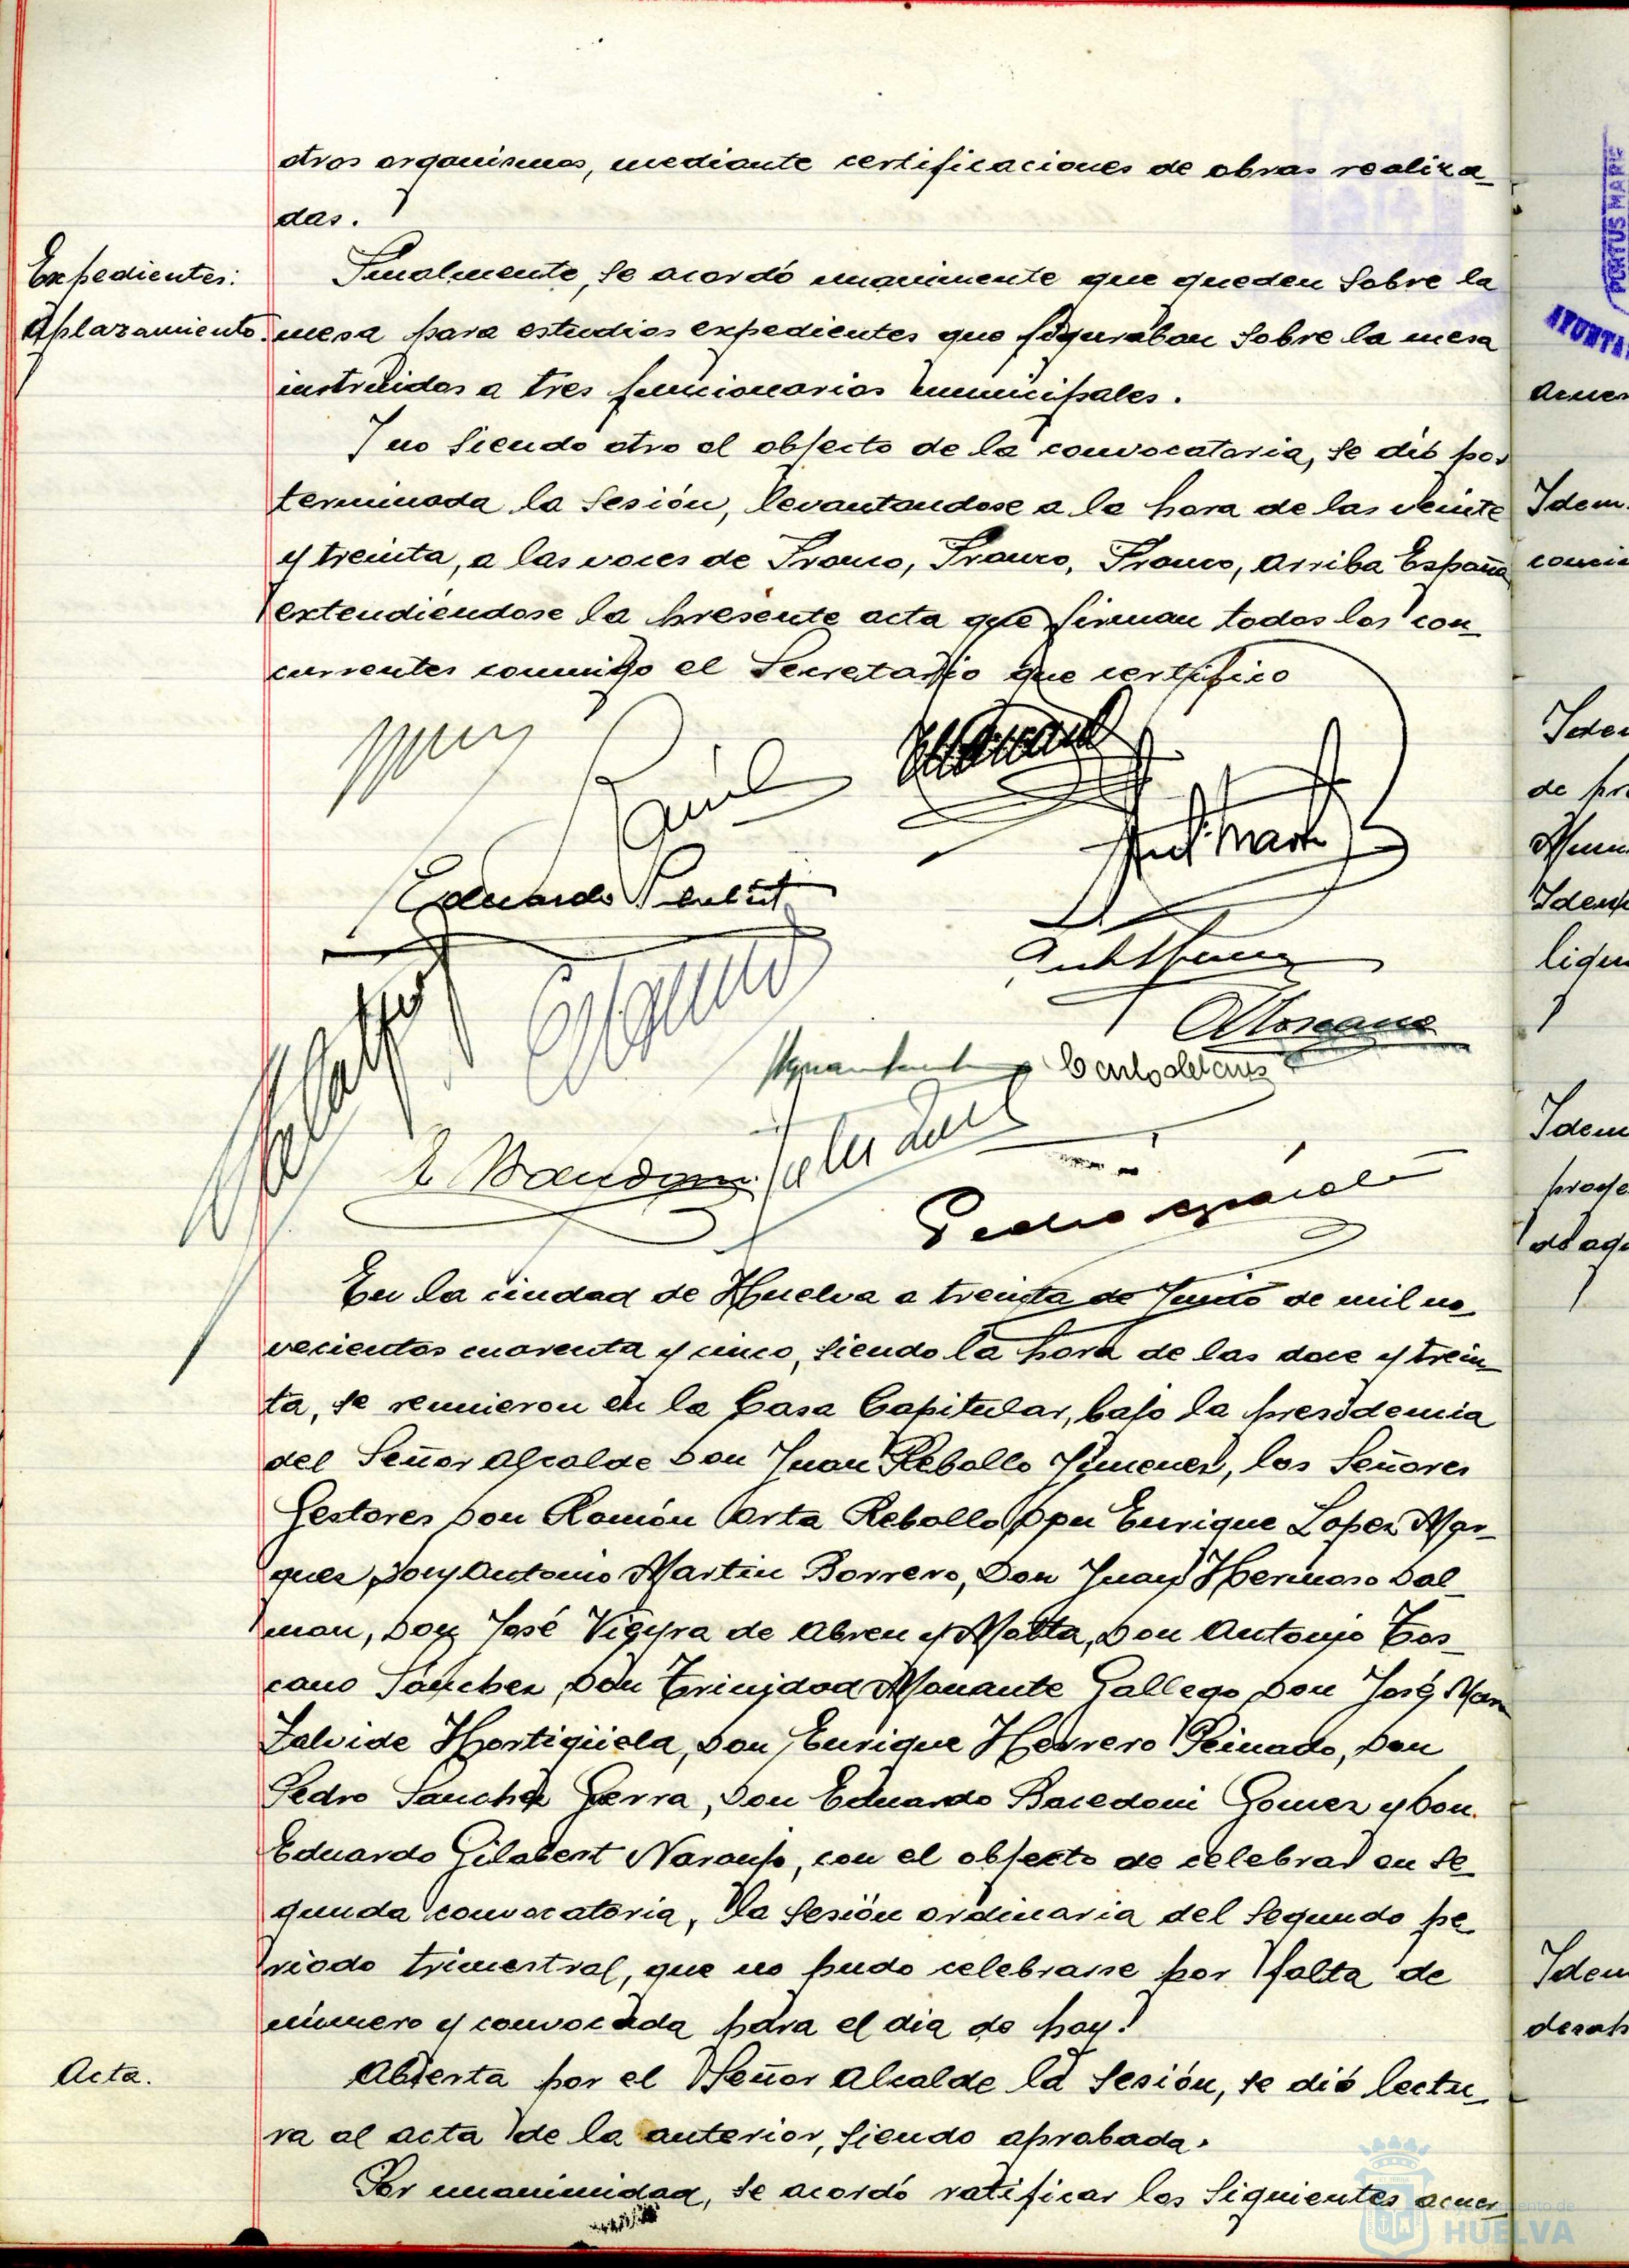 otros organismos, mediante certificaciones de obras realiza-
das.
Expedientes:
Aplazamiento.
Finalmente, se acordó unanimente que queden sobre la
mesa para estudios expedientes que figuraban sobre la mesa
instruidos a tres funcionarios municipales.
Y no siendo otro el objecto de la convocatoria, se dió por
terminada la sesión, levantandose a la hora de las veinte
y treinta, a las voces de Franco, Franco, Franco, Arriba España
extendiéndose la presente acta que firman todos los con-
currentes conmigo el Secretario que certifico
Eduardo
Pedro
En la ciudad de Huelva a treinta de Junio de mil no-
vecientos cuarenta y cinco, siendo la hora de las doce y trein-
ta, se reunieron en la Casa Capitular, bajo la presidencia
del Señor Alcalde Don Juan Rebollo Jimenez, los Señores
Gestores Don Ramón Orta Rebollo, Don Enrique Lopez Mar-
quez, Don Antonio Martin Borrero, Don Juan Hermoso Dal-
mau, Don José Vieyra de Abreu y Motta, Don Antonio Tos-
cano Sánchez, Don Trinidad Monante Gallego, Don José Mar
Zalvide Hortigüela, Don Enrique Herrero Peinado, Don
Pedro Sanchez Gerra, Don Eduardo Bacedoni Gomez y Don
Eduardo Gilabert Naranjo, con el objecto de celebrar en se-
gunda convocatoria, la sesión ordinaria del segundo pe-
riodo trimestral, que no pudo celebrarse por falta de
número y convocada para el dia de hoy.
Acta.
Abierta por el Señor Alcalde la sesión, se dió lectu-
ra al acta de la anterior, siendo aprobada.
Por unanimidad, se acordó ratificar los siguientes acuer-
HUELVA
PORTUS MARIS
Idem
Idem
Idem